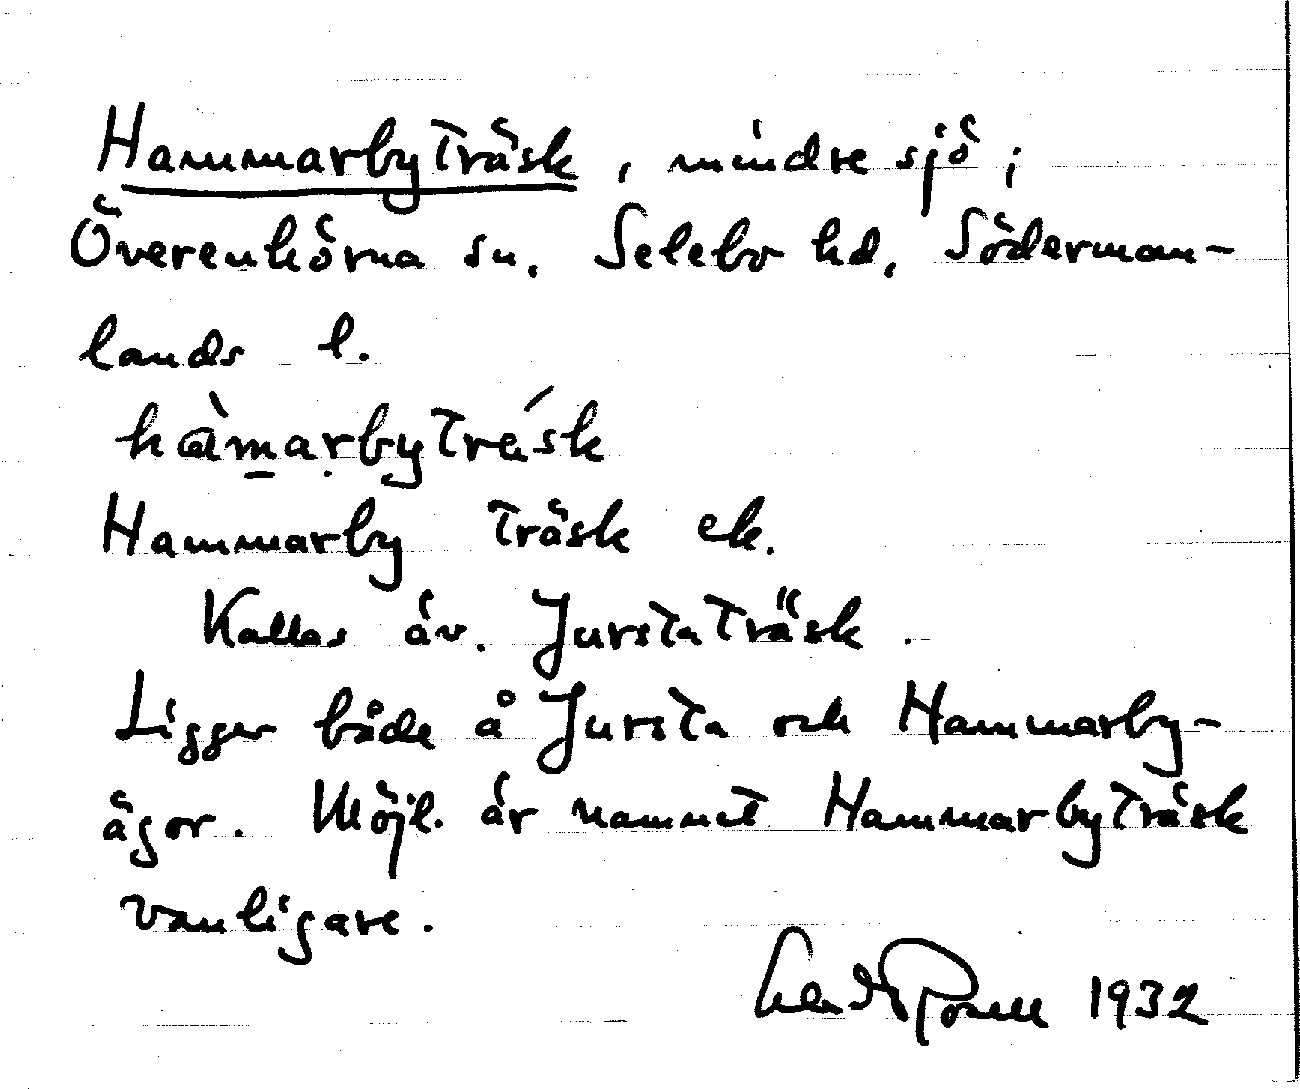 Hammarbyträsk, mindre sjö;
Överenhörna sn. Selebo hd, Söderman-
lands l.
hàmarbytrésk
Hammarby träsk ek.
Kallas äv. Jurstaträsk.
Ligger både å Jursta och Hammarby-
ägor. Möjl. är namnet Hammarbyträsk
vanligare.
1932